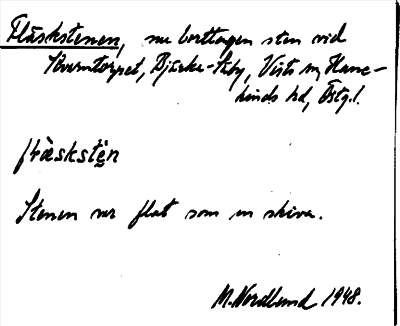 Fläskstenen, nu borttagen sten vid
Kvarntorpet, Bjärka-Säby, Vists sn, Hane-
kinds hd, Östg.l.
flä̀skstèn
Stenen var flat som en skiva.
M. Nordlund 1948.